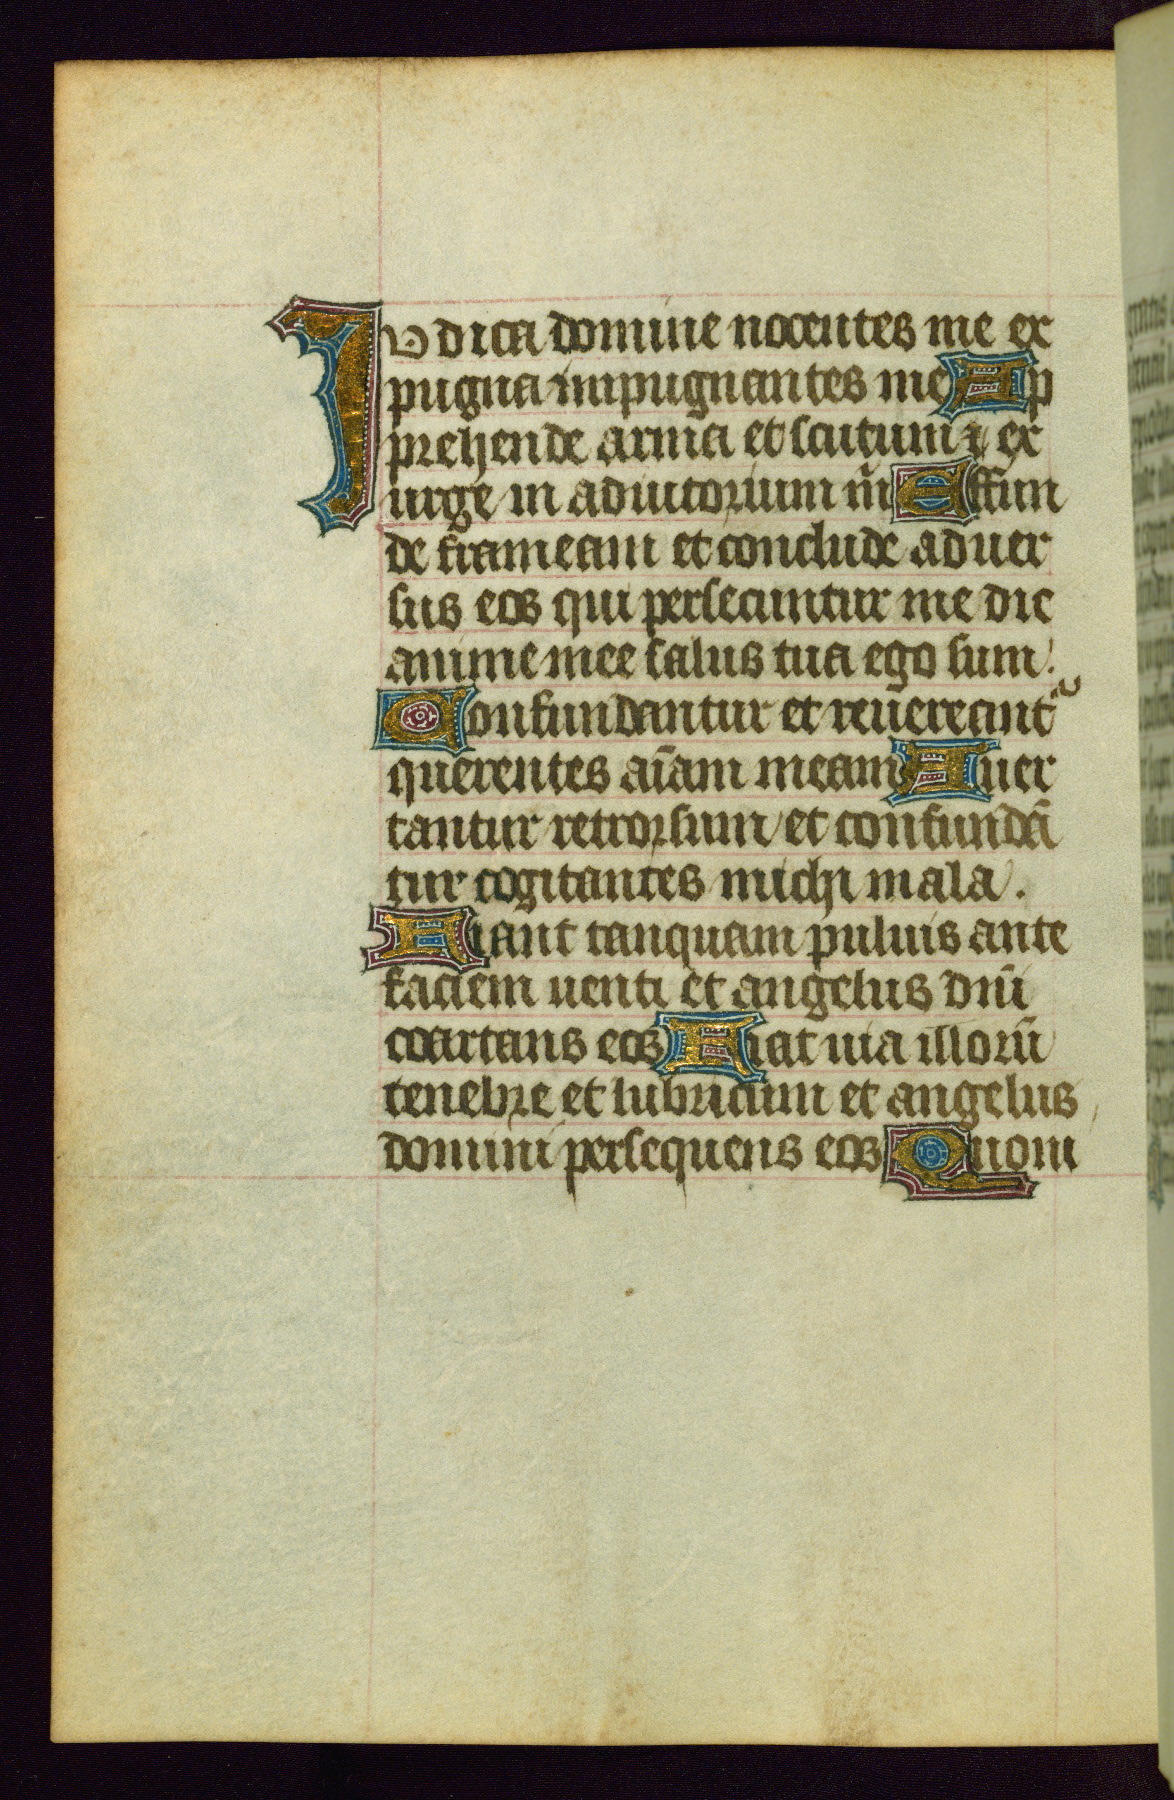 Judica domine nocentes me ex
pugna impugnantes me Ap
prehende arma et scutum ⁊ ex
urge in adiutorium m̄ Effun
de frameam et conclude aduer
sus eos qui persecuntur me dic
anime mee salus tua ego sum.
Confundantur et reuereant͛
querentes aīam meam Auer
tantur retrorsum et confundā
tur cogitantes michi mala.
Fiant tanquam puluis ante
faciem uenti et angelus dn̄i
coartans eos Fiat uia illorū
tenebre et lubricum et angelus
domini persequens eos Quoni